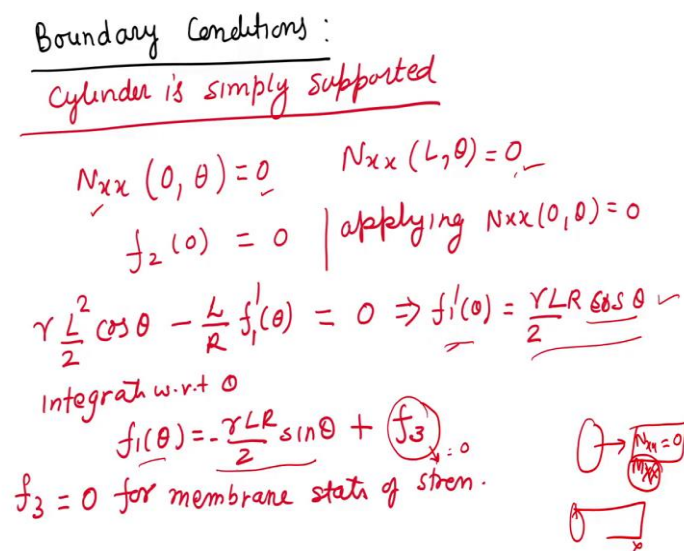 Boundary Conditions:
Cylinder is simply supported
Nxx (0, θ) = 0 Nxx (L, θ) = 0
f₂(0) = 0 | applying Nxx(0, θ) = 0
γ L²/2 cos θ - L/R f₁'(θ) = 0 ⇒ f₁'(θ) = γLR/2 cos θ
integrath w.r.t θ
f₁(θ) = - γLR/2 sin θ + f₃ = 0
f₃ = 0 for membrane stats of stress.
Nxx = 0
Mxx
x